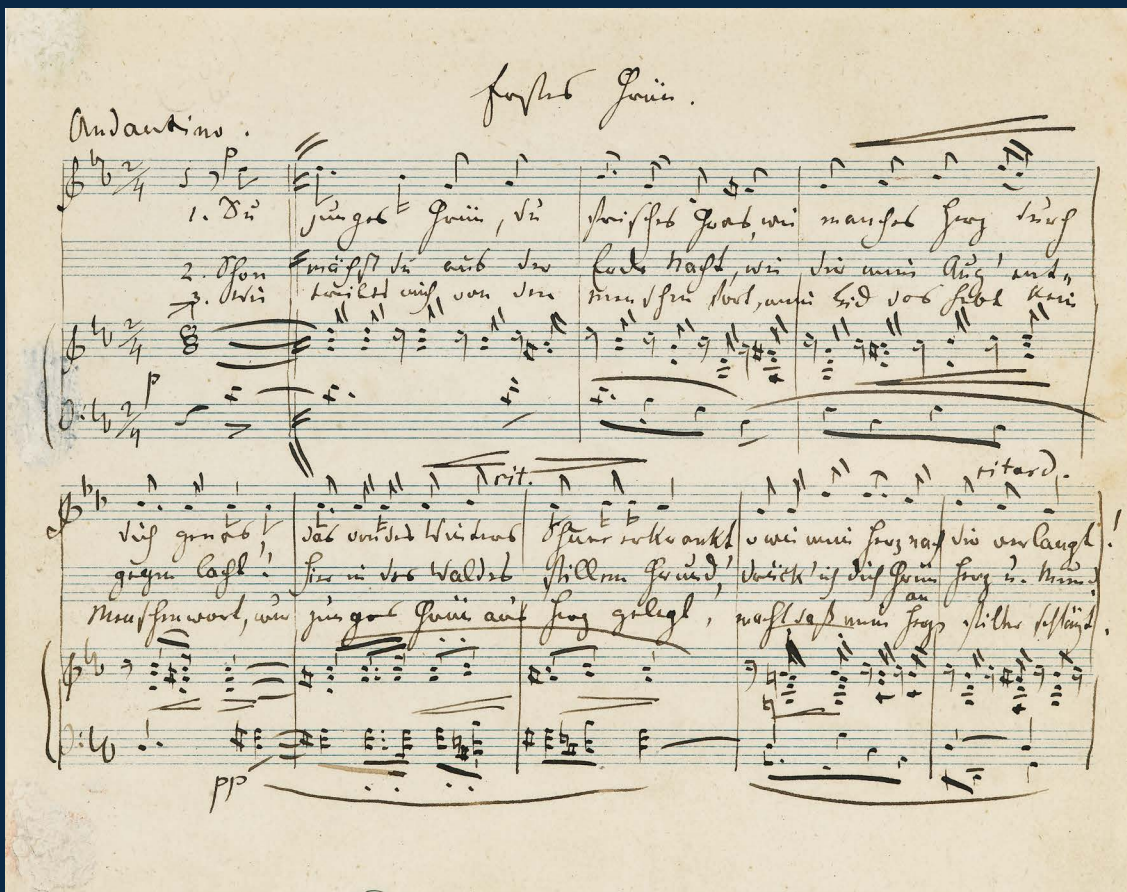 Erstes Grün.
Andantino.
p
1. Du junges Grün, du frisches Gras, wie manches Herz durch
2. Schon wächst du aus der Erde Nacht, wie dir mein Aug' ent=
3. Wie treibt's mich von den Menschen fort, mein Leid das hebt kein
p
rit. ritard.
dich genas! das von des Winters Schnee erkrankt o wie mein Herz nach dir verlangt!
gegen lacht! hier in des Waldes stillem Grund, drück' ich dich Grün an Herz u. Mund
Menschenwort, nur junges Grün aufs Herz gelegt, macht daß mein Herz stiller schlägt.
pp